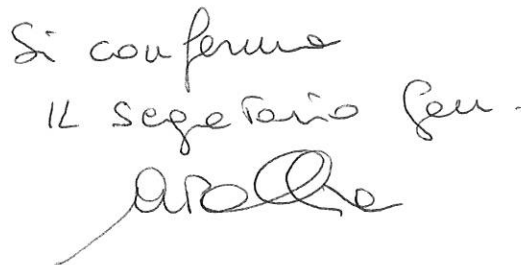 Si conferma
IL Segretario Gen.